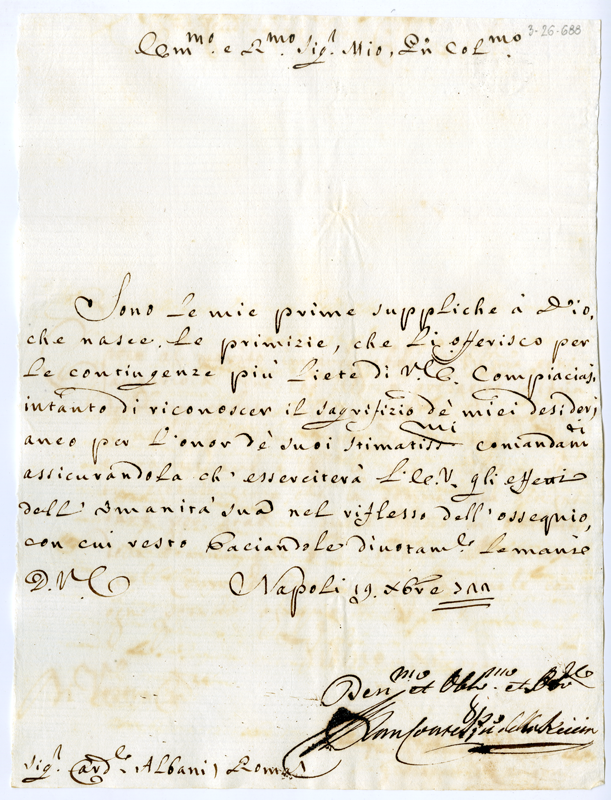 3-26-688
Em.mo e R.mo Sig.r Mio, Pñ Col.mo
Sono le mie prime suppliche à Dio,
che nasce, le primizie, che li offerisco per
le contingenze più liete di V.E. Compiacias,
intanto di riconoscer il sagrifizio dè miei desiderj
anco per l'onor dè suoi stimatiss.mi comandam.ti
assicurandola ch'esserciterà l'E.V. gli effetti
dell'Umanità sua nel riflesso dell'ossequio,
con cui resto baciandole divotam.te le mani
D.V.E. Napoli 19. Xbre
Den.mo et Obl.mo et
Sig.r Card.le Albani, Roma